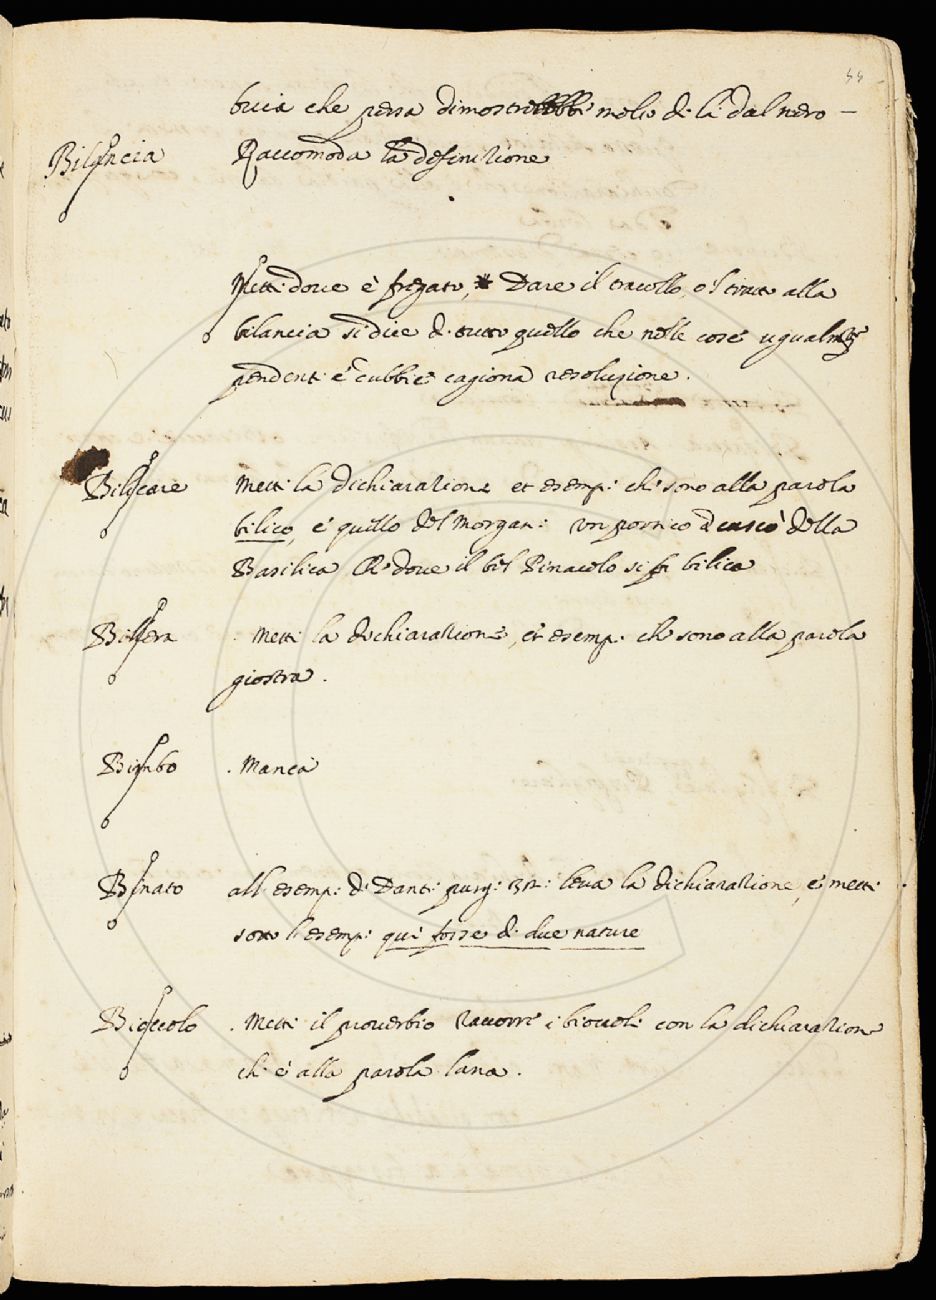 55
bucia che persa dimostrerebbe molio di la dal nero —
Bilancia Raccomoda la definizione
Metti dove è fregato, * Dare il tracollo, o l tratto alla
bilancia si dice di tutto quello che nelle cose ugualm.te
pendenti e dubbie cagiona resoluzione.
Bilicare Metti la dichiarazione et esemp: che sono alla parola
bilico, e quello del Morgan: un portico della
Basilica Or dove il bel Pinacolo si bilica
Biffera . Metti la dichiarazione, et esemp: che sono alla parola
giostra.
Bimbo . Manca
Binato all esemp: di Dant: purg: 32: leva la dichiarazione, e metti
sotto l esemp: qui forse di due nature
Bioccolo . Metti il proverbio Raccorre i bioccoli con la dichiarazione
ch' è alla parola lana.